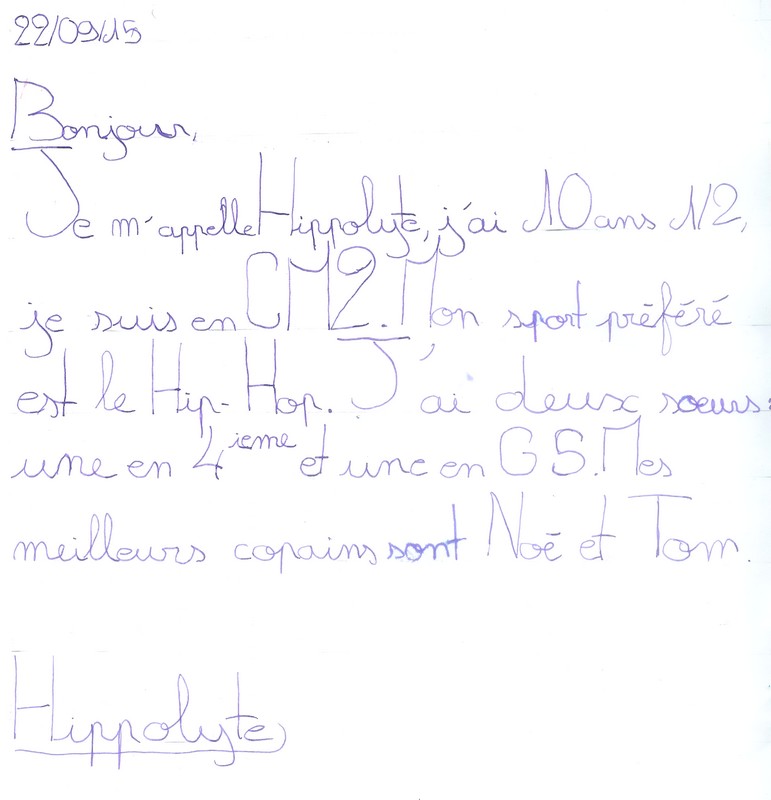 22/09/15
Bonjour,
Je m'appelle Hippolyte, j'ai 10 ans 1/2,
je suis en CM2. Mon sport préféré
est le Hip-Hop. J'ai deux sœurs:
une en 4ieme et une en GS. Mes
meilleurs copains sont Noé et Tom.
Hippolyte